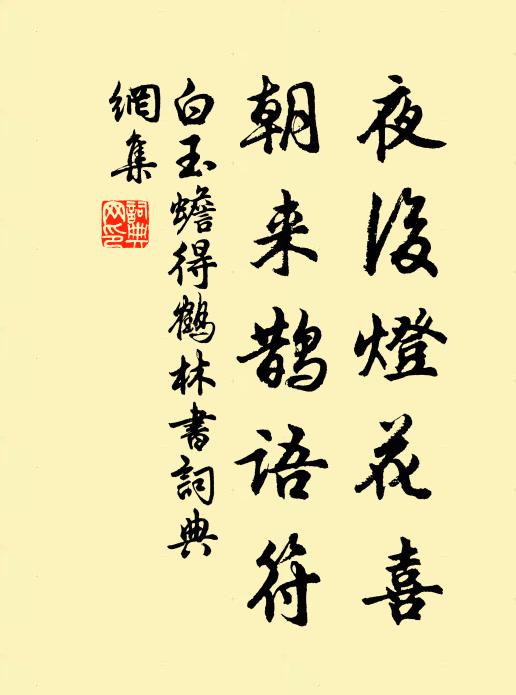 夜後燈花喜
朝来鹊語符
白玉蟾得鶴林書詞典
網集
詞典
网印